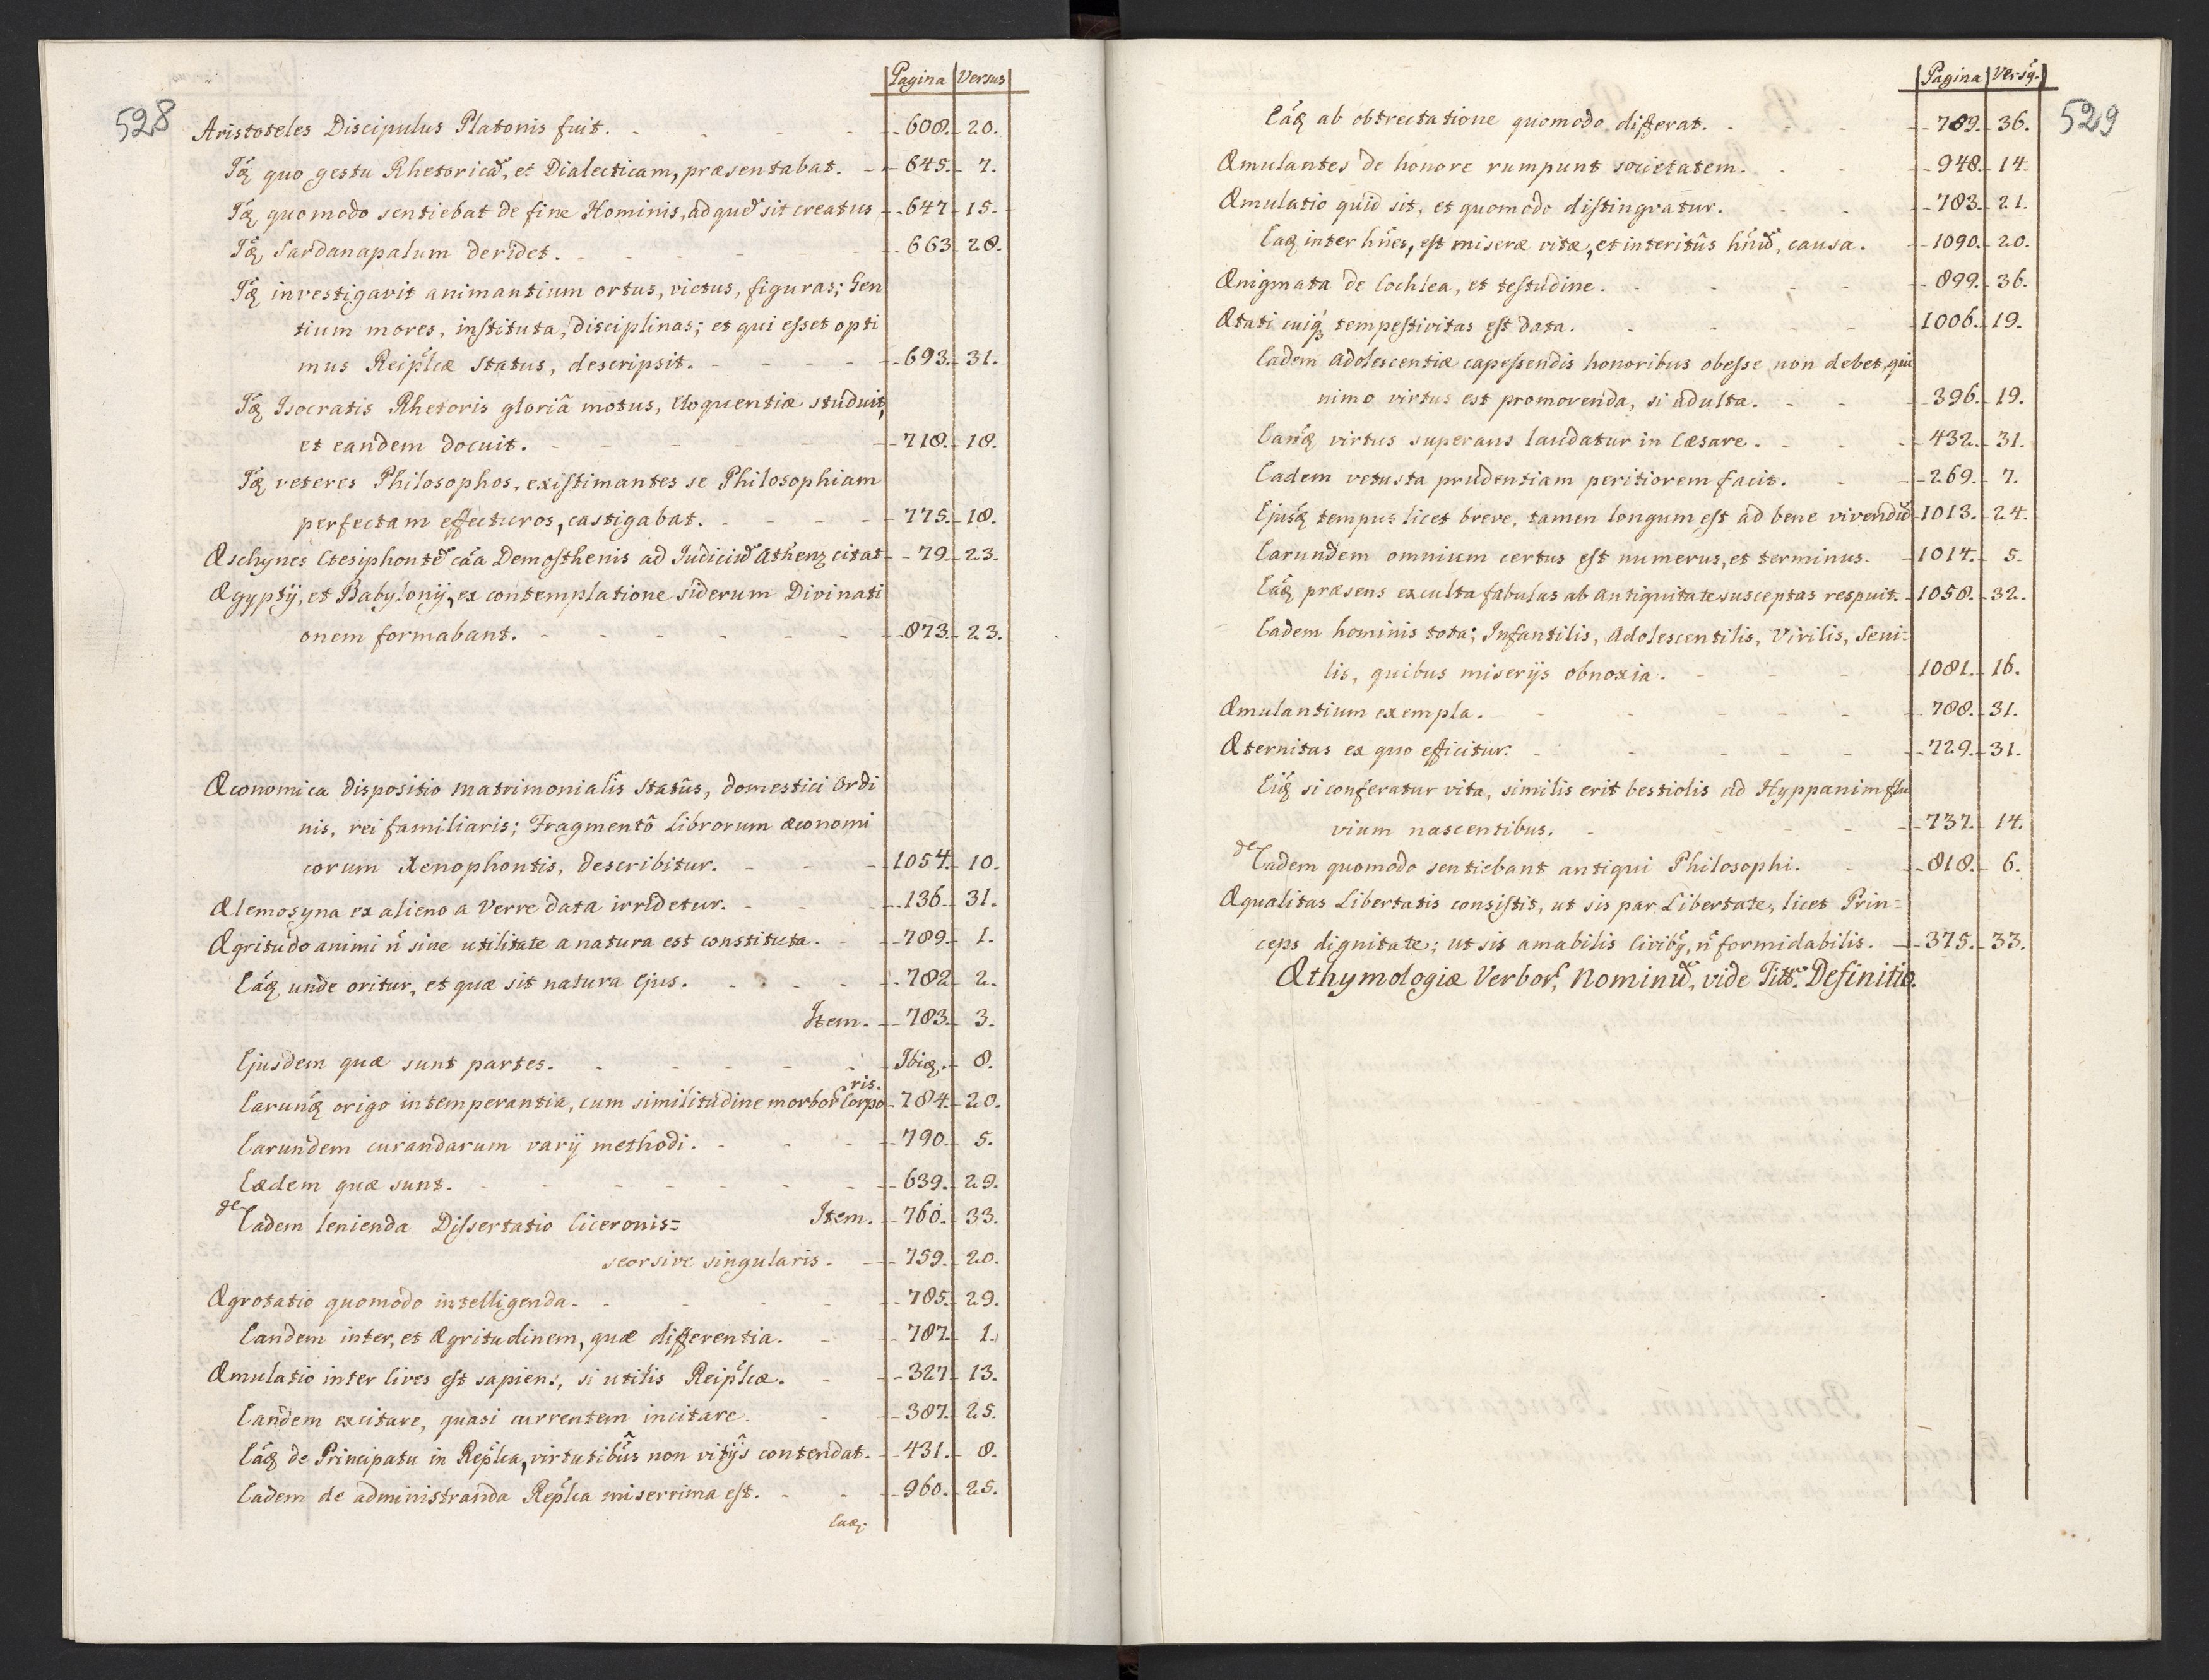 Pagina Versus
528
Aristoteles Discipulus Platonis fuit. 608. 20.
Idq quo gestu Rhetoricã, et Dialecticam, præsentabat. 645. 7.
Idq quomodo sentiebat de fine Hominis, ad quẽ sit creatus 647 15.
Idq Sardanapalum deridet. 663 28.
Idq investigavit animantium ortus, victus, figuras; Gen
tium mores, instituta, disciplinas; et qui esset opti
mus Reiplcæ Status, descripsit. 693. 31.
Idq Isocratis Rhetoris gloriâ motus, Eloquentiæ studuit,
et eandem docuit. 718. 18.
Idq veteres Philosophos, existimantes se Philosophiam
perfectam effecturos, castigabat. 775. 18.
Æschynes Ctesiphontẽ cãa Demosthenis ad Judiciũ Athenz citat 79. 23.
Ægyptij, et Babylonij, ex contemplatione siderum Divinati
onem formabant. 873. 23.
Æconomica dispositio matrimonialis Statûs, domestici Ordi
nis, rei familiaris; Fragmentô Librorum æconomi
corum Xenophontis, describitur. 1054. 10.
Ælemosyna ex alieno a Verre data irridetur. 136. 31.
Ægritudo animi ñ sine utilitate a natura est constituta. 789. 1.
Eãq unde oritur, et quæ sit natura Ejus. 782 2.
Item. 783. 3.
Ejusdem quæ sunt partes. Ibiq. 8.
Earunq origo intemperantia, cum similitudine morbor Corpo ris. 784. 20.
Earundem curandarum varij methodi. 790. 5.
Eædem quæ sunt. 639. 29.
de Eadem lenienda Dissertatio Ciceronis= Item. 760. 33.
seorsive singularis. 759. 20.
Ægrotatio quomodo intelligenda. 785. 29.
Eandem inter, et Ægritudinem, quæ differentia. 787. 1.
Æmulatio inter Cives est sapiens, si utilis Reiplcæ. 327 13.
Eandem excitare, quasi currentem incitare. 387. 25.
Eãq de Principatu in Replca, virtutibûs non vitijs contendat. 431. 8.
Eadem de administranda Replca miserrima est. 960. 25.
Eaq.
Pagina Versq.
529
Eãq ab obtrectatione quomodo differat. 789. 36.
Æmulantes de honore rumpunt societatem. 948. 14.
Æmulatio quid sit, et quomodo distingvatur. 783. 21.
Eaq inter hñes, est miseræ vitæ, et interitûs hñuũ, causa. 1090. 20.
Ænigmata de Cochlea, et testudine. 899. 36.
Ætati cuiq tempestivitas est data. 1006. 19.
Eadem Adolescentiæ capessendis honoribus obesse non debet, qui
nimo virtus est promovenda, si adulta. 396. 19.
Eanq virtus superans laudatur in Cæsare. 432. 31.
Eadem vetusta prudentiam peritiorem facit. 269. 7.
Ejusq tempus licet breve, tamen longum est ad bene vivendũ 1013. 24.
Earundem omnium certus est numerus, et terminus. 1014. 5.
Eãq præsens exculta fabulas ab antiquitate susceptas respuit. 1058. 32.
Eadem hominis tota; Infantilis, Adolescentilis, Virilis, Seni=
lis, quibus miserijs obnoxia. 1081. 16.
Æmulantium exempla. 788. 31.
Æternitas ex quo efficitur. 729. 31.
Eiq si conferatur vita, similis erit bestiolis ad Hyppanim flu
vium nascentibus. 737. 14.
de Eadem quomodo sentiebant antiqui Philosophi. 818. 6.
Æqualitas Libertatis consistit, ut sis par Libertate, licet Prin=
ceps dignitate; ut sis amabilis Civibq, ñ formidabilis. 375. 33.
Æthymologiæ Verbor, Nominũ, vide Titt. de Definitio.